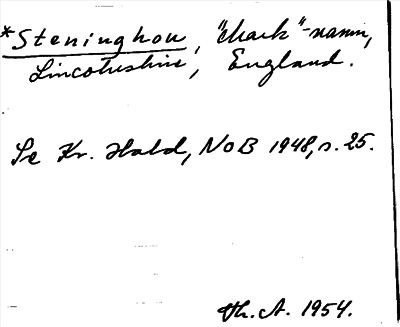 *Steninghou, "Mark"-namn,
Lincolnshire, England.
Se Kr. Hald, NoB 1948, s. 25.
Th. A. 1954.